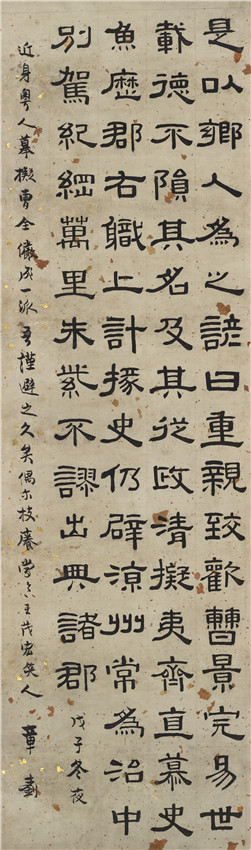 是以鄉人為之諺曰重親致歡曹景完易世
載德不隕其名及其從政清擬夷齊直慕史
魚歷郡右職上計掾史仍辟涼州常為治中
別駕紀綱萬里朱紫不謬出典諸郡
戊子冬夜
近身粵人摹擬曹全儼成一派吾謹避之久矣偶尔枝癢王茂宏笑人 章